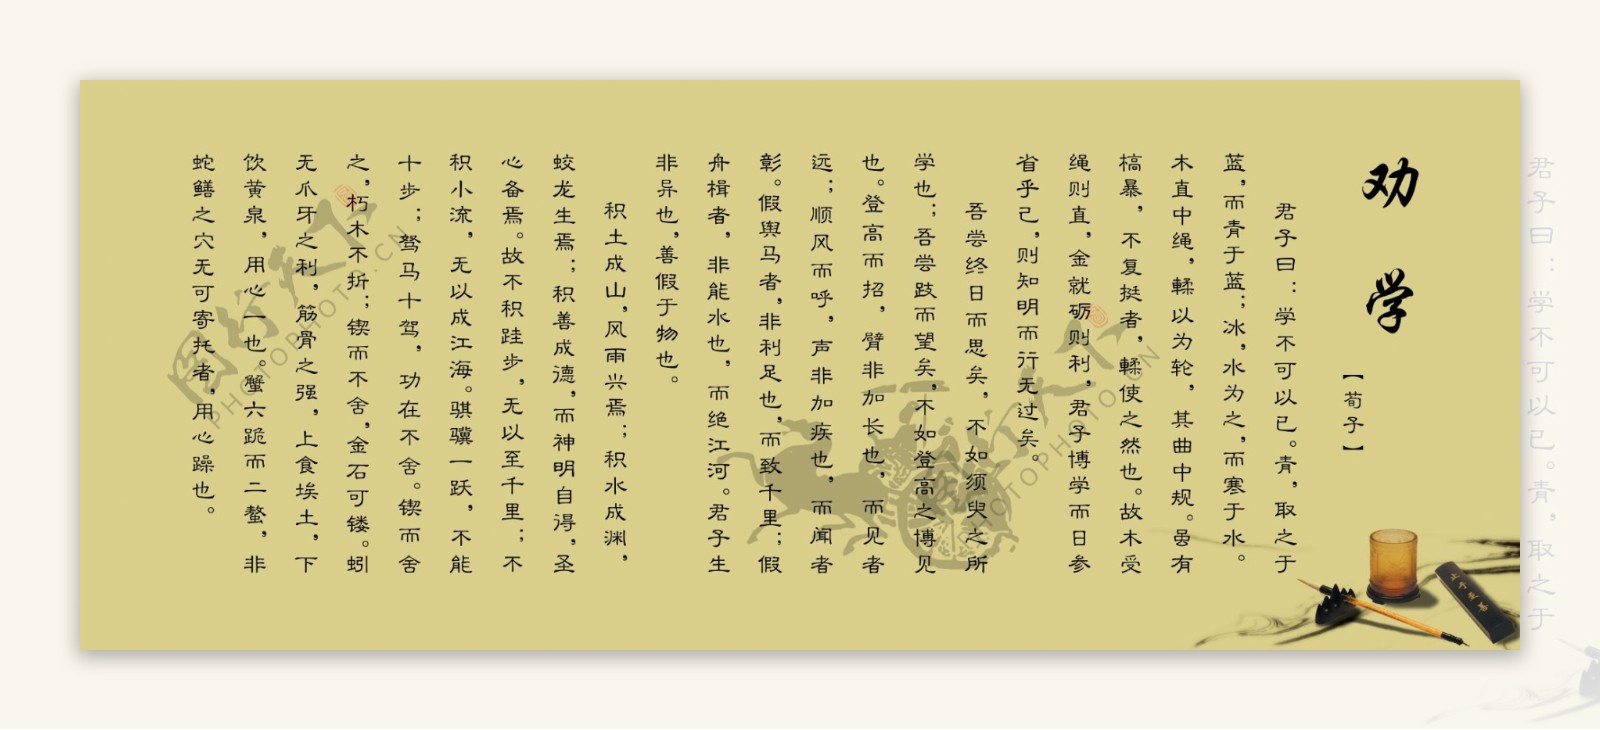 劝学
【荀子】
君子曰：学不可以已。青，取之于
蓝，而青于蓝；冰，水为之，而寒于水。
木直中绳，輮以为轮，其曲中规。虽有
槁暴，不复挺者，輮使之然也。故木受
绳则直，金就砺则利，君子博学而日参
省乎己，则知明而行无过矣。
吾尝终日而思矣，不如须臾之所
学也；吾尝跂而望矣，不如登高之博见
也。登高而招，臂非加长也，而见者
远；顺风而呼，声非加疾也，而闻者
彰。假舆马者，非利足也，而致千里；假
舟楫者，非能水也，而绝江河。君子生
非异也，善假于物也。
积土成山，风雨兴焉；积水成渊，
蛟龙生焉；积善成德，而神明自得，圣
心备焉。故不积跬步，无以至千里；不
积小流，无以成江海。骐骥一跃，不能
十步；驽马十驾，功在不舍。锲而舍
之，朽木不折；锲而不舍，金石可镂。蚓
无爪牙之利，筋骨之强，上食埃土，下
饮黄泉，用心一也。蟹六跪而二螯，非
蛇鳝之穴无可寄托者，用心躁也。
君子曰：学不可以已。青，取之于
图行天下
PHOTOPHOTO.CN
图行天下
PHOTOPHOTO.CN